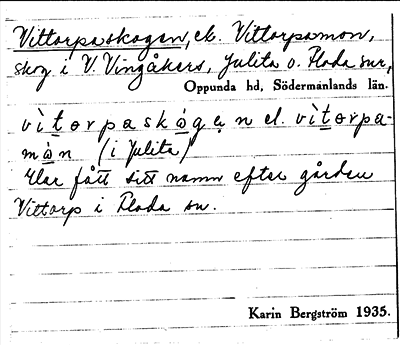 Vittorpaskogen, el. Vittorpamon,
skog i V. Vingåkers, Julita o. Floda snr,
Oppunda hd, Södermanlands län.
vìtorpaskògen el. vìtorpa-
màn (i Julita)
Har fått sitt namn efter gården
Vittorp i Floda sn.
Karin Bergström 1935.